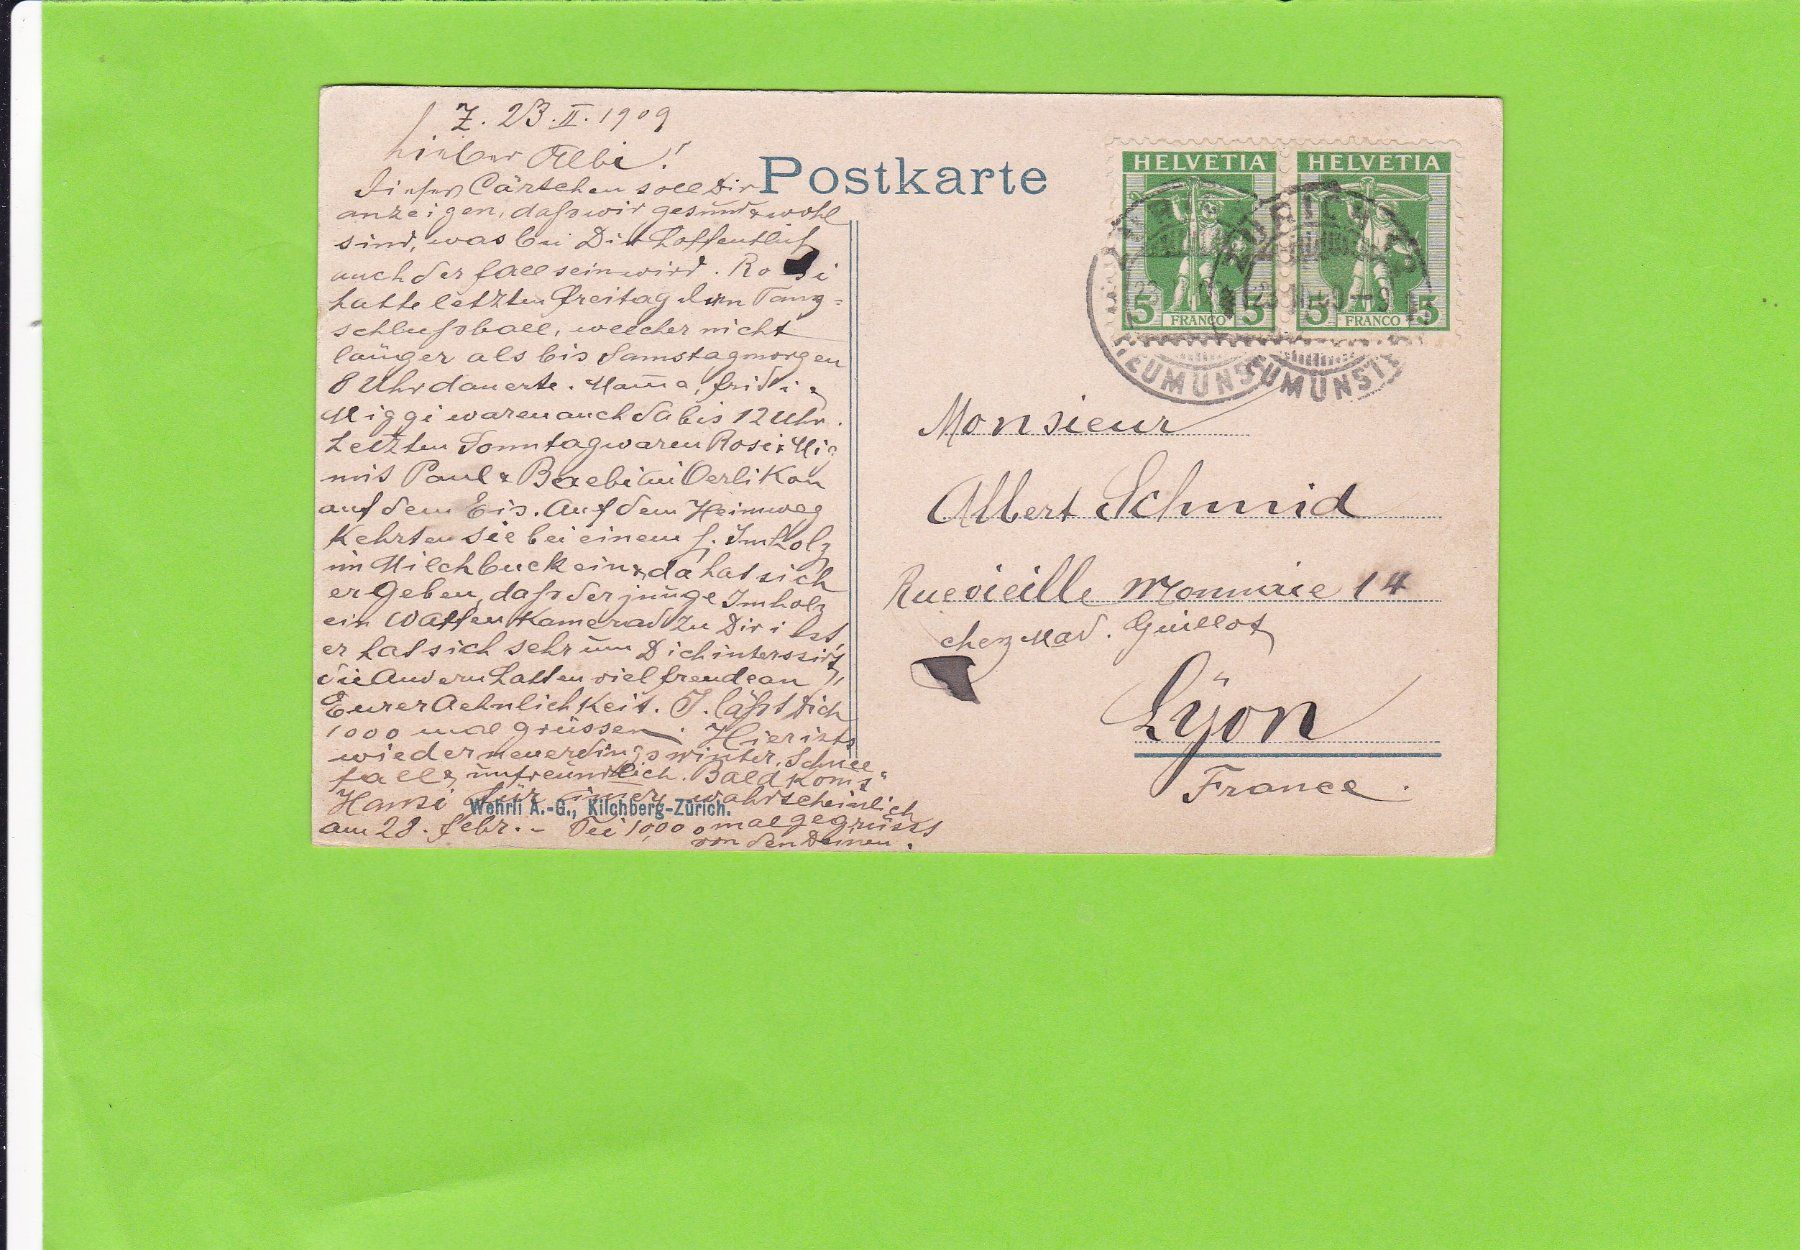 Z. 23.II.1909
Lieber Albi!
Dieses Cärtchen soll Dir
anzeigen, dass wir gesund & wohl
sind, was bei Dir hoffentlich
auch der fall sein wird. Ro i
hatte letzten Freitag den Tanz-
schlussball, welcher nicht
länger als bis Samstagmorgen
8 Uhr dauerte. Mama, Fridi &
Miggi waren auch da bis 12 Uhr.
Letzten Sonntag waren Rosi &
mit Paul & Baebi in Oerlikon
auf dem Eis. Auf dem Heimweg
Kehrten sie bei einem J. Imholz
im Milchbuck ein & da hat sich
ergeben, dass der junge Imholz
ein Waffen Kamerad zu Dir ist,
er hat sich sehr um Dich
die Andern hatten viel freude an
Eurer Aehnlichkeit. J. lässt Dich
1000 mal grüssen. Hier ists
wieder neuerdings winter. Schnee
fall & unfreundlich. Bald
Hansi für immer wahrscheinlich
am 28. febr. - Sei 10,000 mal gegrüsst
von den Deinen.
Wehrli A.-G., Kilchberg-Zürich.
Postkarte
HELVETIA HELVETIA
5 FRANCO 5 5 FRANCO 5
ZÜRICH
NEUMÜNSTER
Monsieur
Albert Schmid
Rue vieille Monnaie 14
chez Mad. Guillot
Lÿon
France.